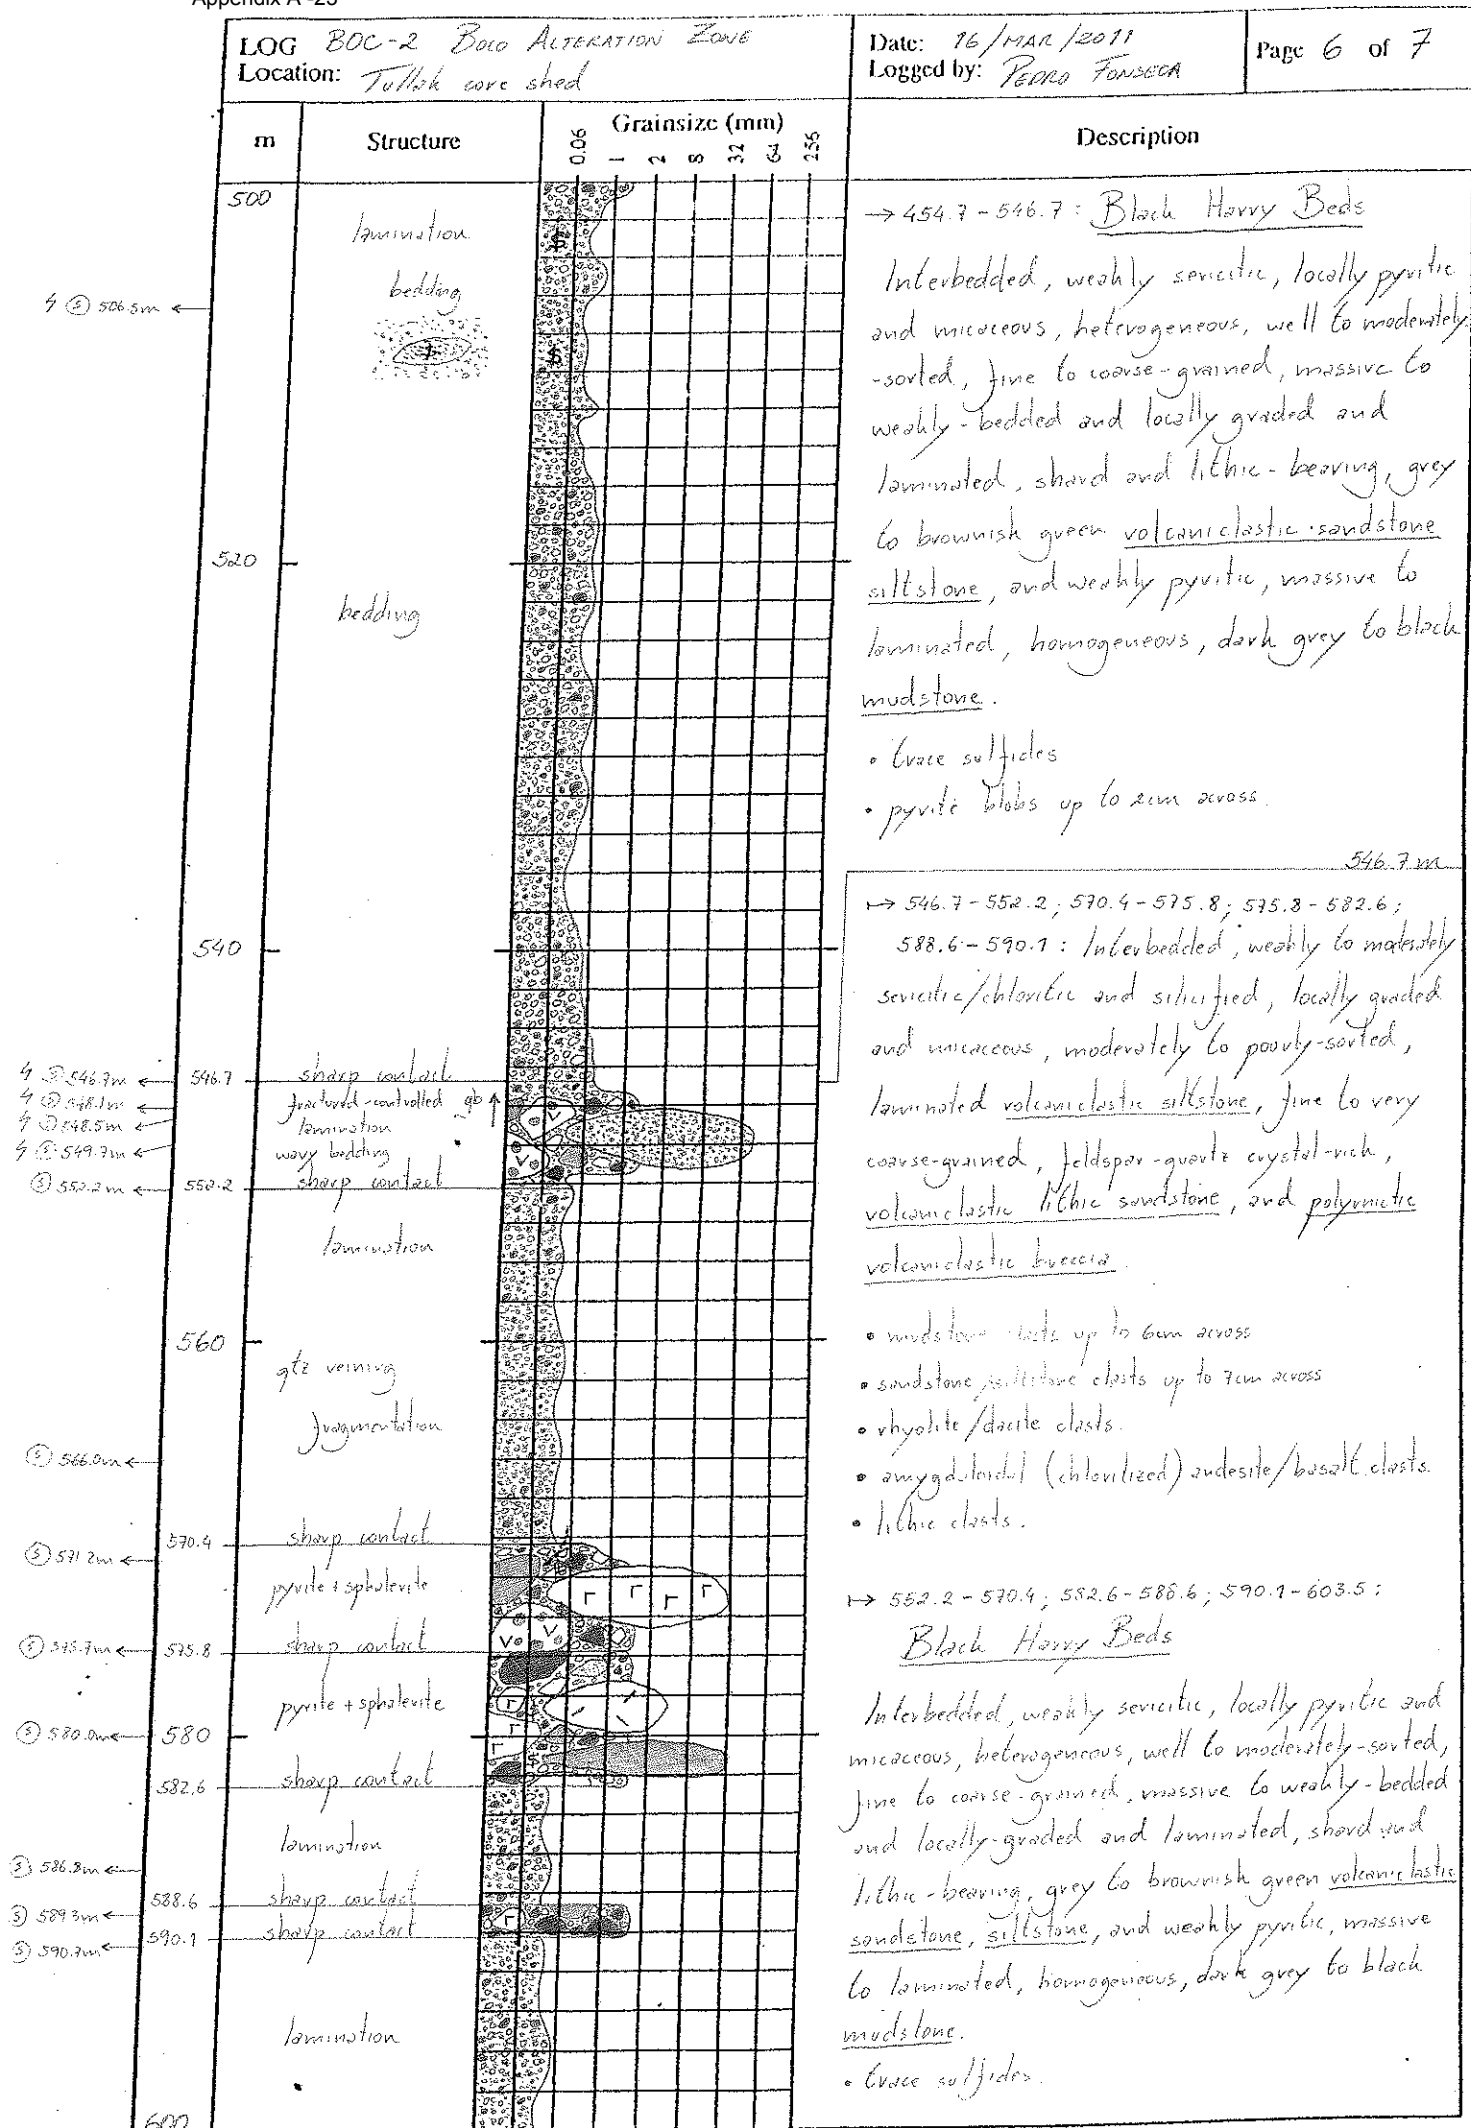 Appendix A -23
LOG BOC-2 BOCO ALTERATION ZONE
Location: Tullah core shed
Date: 16/MAR/2011
Logged by: PEDRO FONSECA
Page 6 of 7
m
Structure
Grainsize (mm)
0.06 1 2 8 32 64 256
Description
500
lamination
bedding
506.5m
520
bedding
540
546.7m
548.1m
548.5m
549.7m
552.2m
546.7 sharp contact
fractured-controlled gb
lamination
wavy bedding
552.2 sharp contact
lamination
560
qtz veining
fragmentation
S 566.0m
570.4 sharp contact
S 571.2m
pyrite + sphalerite
S 575.7m
575.8 sharp contact
pyrite + sphalerite
S 580.0m
580
582.6 sharp contact
lamination
S 586.8m
588.6 sharp contact
S 589.3m
590.1 sharp contact
S 590.7m
lamination
600
→ 454.7 - 546.7 : Black Harry Beds
Interbedded, weakly sericitic, locally pyritic
and micaceous, heterogeneous, well to moderately
-sorted, fine to coarse-grained, massive to
weakly-bedded and locally graded and
laminated, shard and lithic-bearing, grey
to brownish green volcaniclastic sandstone
siltstone, and weakly pyritic, massive to
laminated, homogeneous, dark grey to black
mudstone.
• trace sulfides
• pyrite blobs up to 2cm across.
546.7 m
↦ 546.7 - 552.2 ; 570.4 - 575.8 ; 575.8 - 582.6 ;
588.6 - 590.1 : Interbedded, weakly to moderately
sericitic/chloritic and silicified, locally graded
and micaceous, moderately to poorly-sorted,
laminated volcaniclastic siltstone, fine to very
coarse-grained, feldspar-quartz crystal-rich,
volcaniclastic lithic sandstone, and polymictic
volcaniclastic breccia.
• mudstone clasts up to 6cm across
• sandstone/siltstone clasts up to 7cm across
• rhyolite/dacite clasts.
• amygdaloidal (chloritized) andesite/basalt clasts.
• lithic clasts.
↦ 552.2 - 570.4 ; 582.6 - 588.6 ; 590.1 - 603.5 :
Black Harry Beds
Interbedded, weakly sericitic, locally pyritic and
micaceous, heterogeneous, well to moderately-sorted,
fine to coarse-grained, massive to weakly-bedded
and locally-graded and laminated, shard and
lithic-bearing, grey to brownish green volcaniclastic
sandstone, siltstone, and weakly pyritic, massive
to laminated, homogeneous, dark grey to black
mudstone.
• trace sulfides.